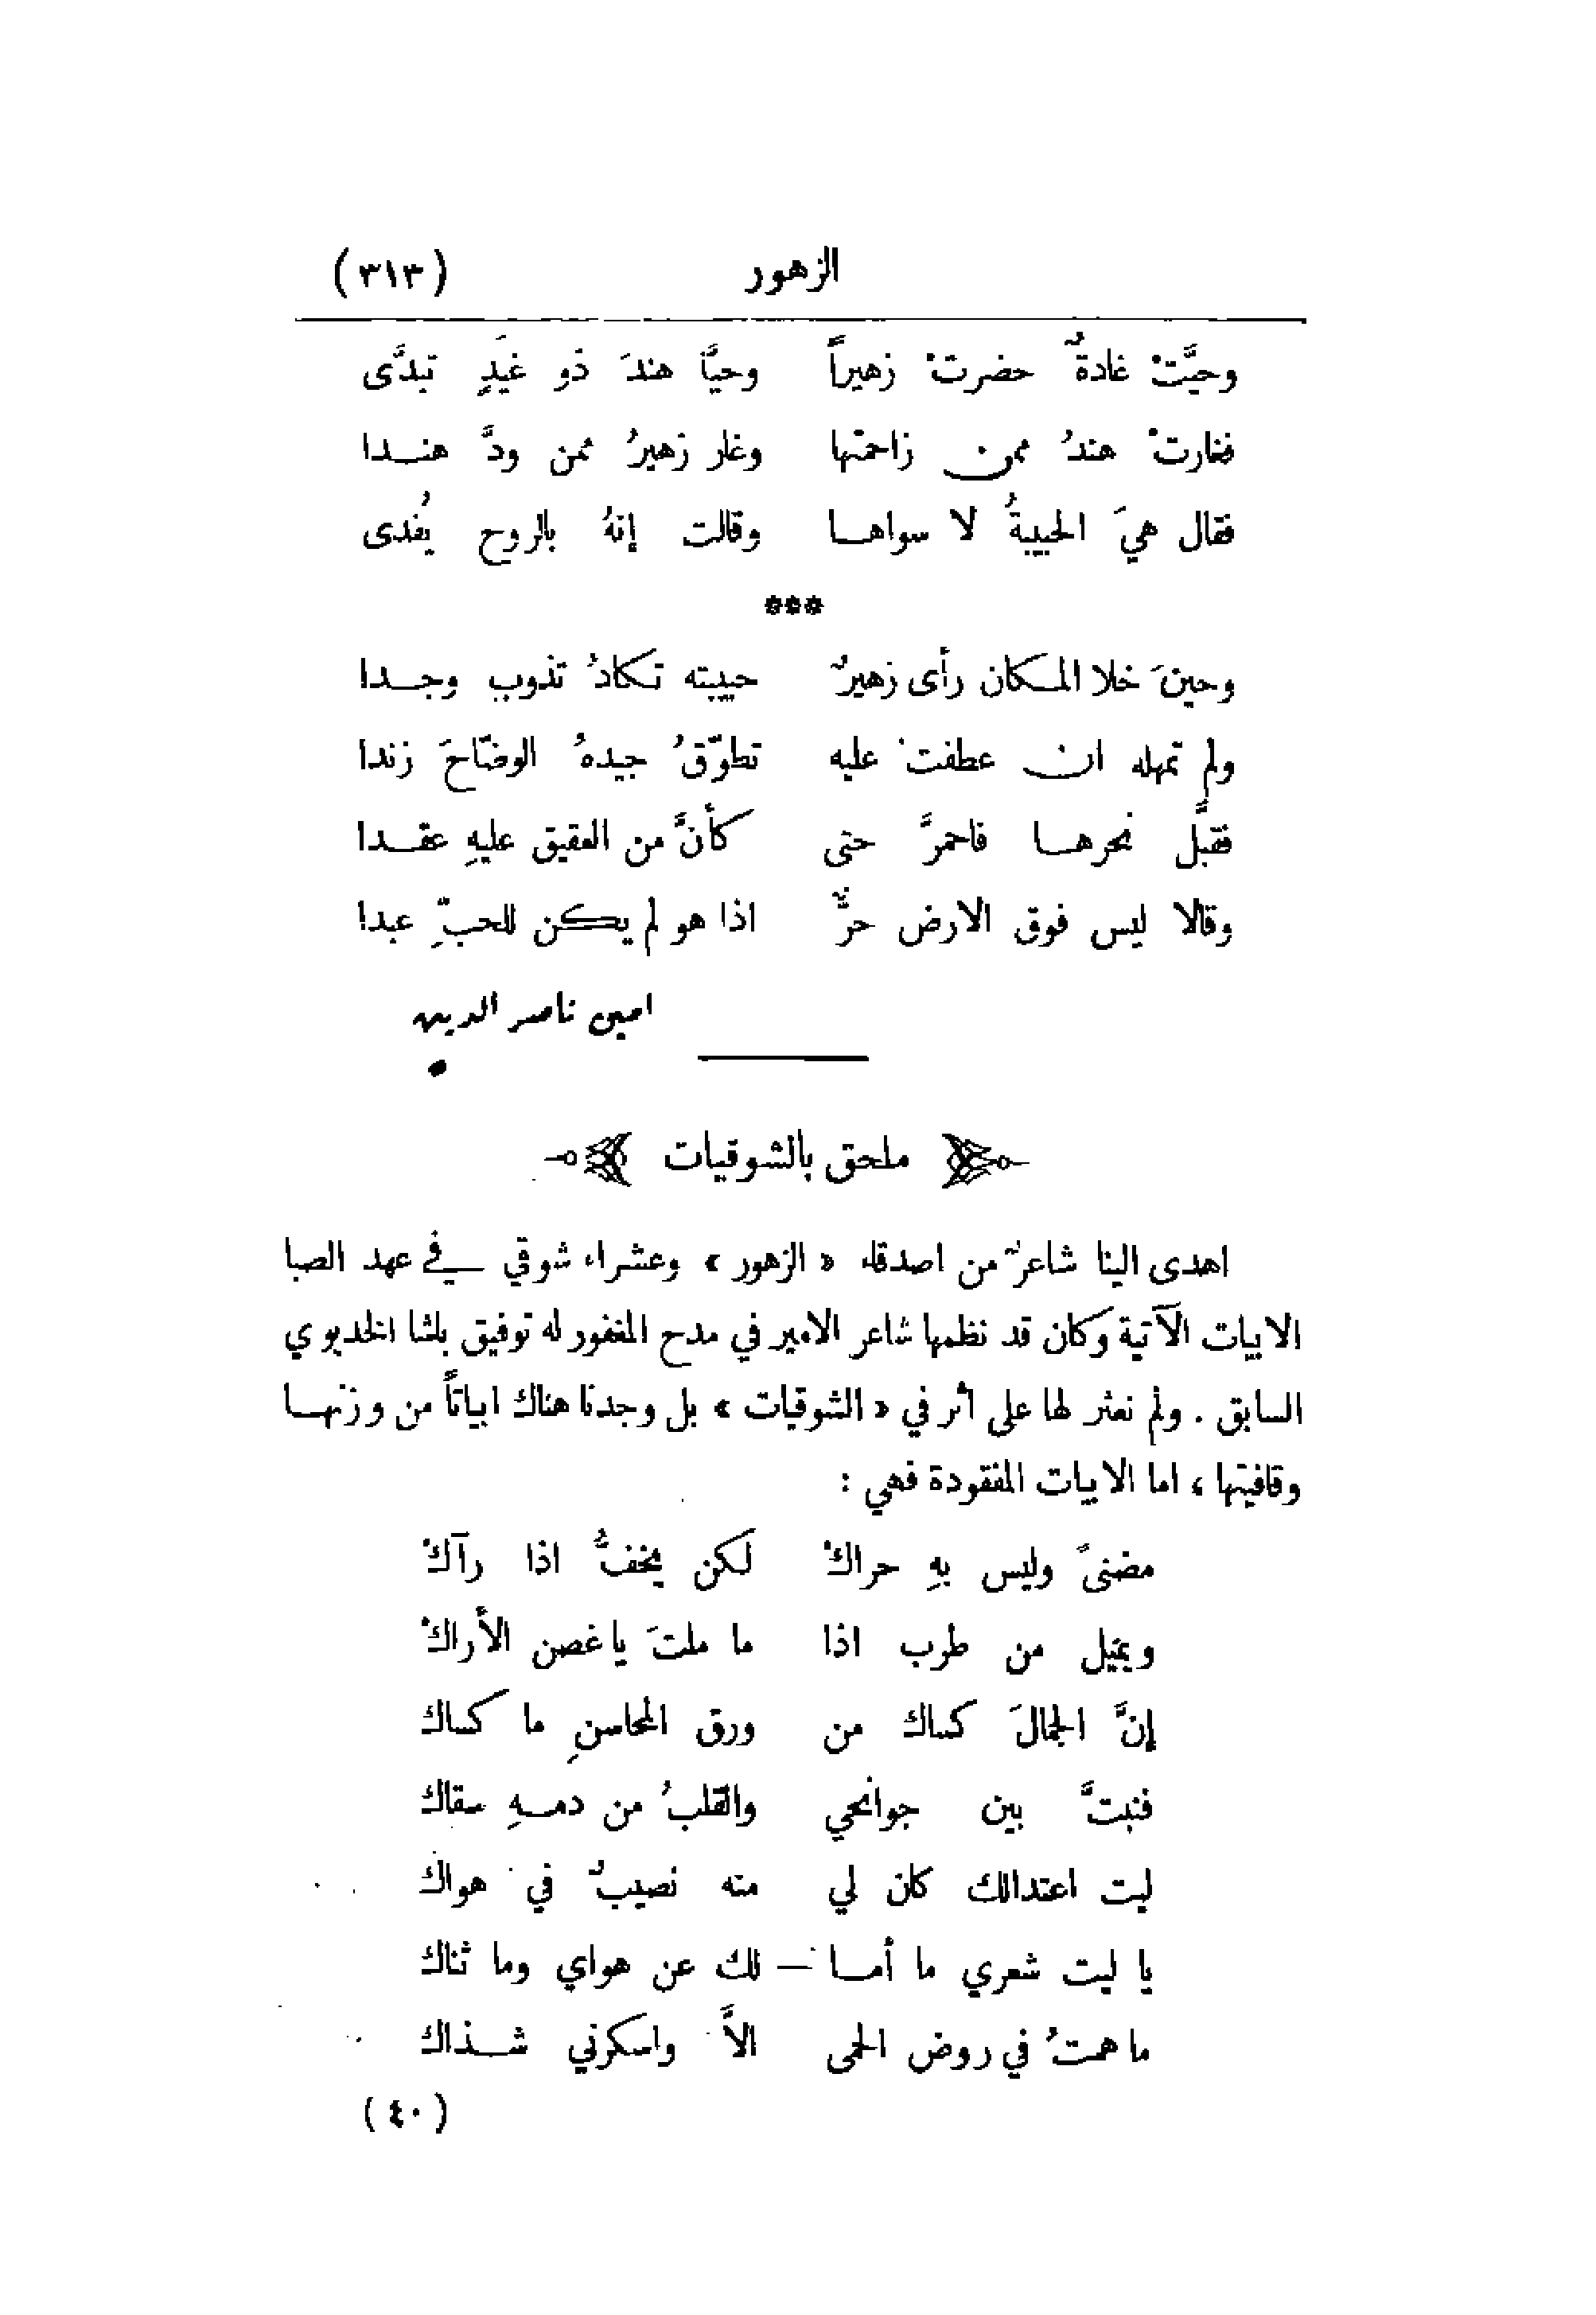 الزهور (٣١٣)
وحيَّتْ غادةٌ حضرتْ زهيراً وحيَّا هندَ ذو غيَدٍ تبدَّى
فغارتْ هندُ ممن زاحمتها وغار زهيرُ ممن ودَّ هندا
فقال هيَ الحبيبةُ لا سواها وقالت إنهُ بالروح يُفدى
***
وحينَ خلا المكان رأى زهيرٌ حبيبته تكادُ تذوب وجدا
ولم تمهله ان عطفتْ عليه تطوّقُ جيدهُ الوضّاحَ زندا
فقبَّل نحرها فاحمرَّ حتى كأنَّ من العقيق عليهِ عقدا
وقالا ليس فوق الارض حرٌّ اذا هو لم يكن للحبّ عبدا
امين ناصر الدين
ملحق بالشوقيات
اهدى الينا شاعرٌ من اصدقاء « الزهور » وعشراء شوقي في عهد الصبا
الابيات الآتية وكان قد نظمها شاعر الامير في مدح المغفور له توفيق باشا الخديوي
السابق . ولم نعثر لها على أثر في « الشوقيات » بل وجدنا هناك ابياتاً من وزنها
وقافيتها ، اما الابيات المفقودة فهي :
مضنىً وليس بهِ حراكْ لكن يخفُّ اذا رآكْ
ويميل من طرب اذا ما ملتَ يا غصن الأراكْ
إنَّ الجمالَ كساك من ورق المحاسنِ ما كساك
فنبتَّ بين جوانحي والقلبُ من دمهِ سقاك
ليت اعتدالك كان لي منه نصيبٌ في هواك
يا ليت شعري ما أما – لك عن هواي وما ثناك
ما همتُ في روض الحمى الاَّ واسكرني شذاك
(٤٠)